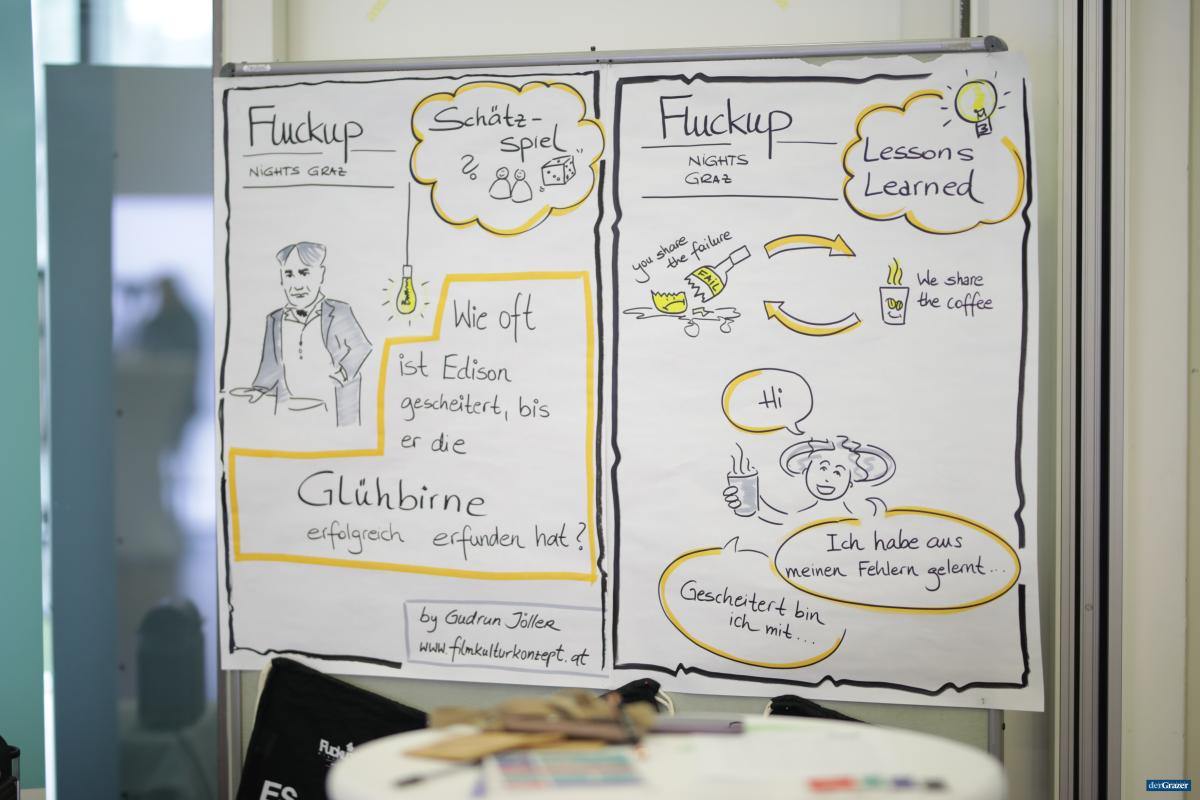 Fluckup
NIGHTS GRAZ
Schätz-
spiel
?
Wie oft
ist Edison
gescheitert, bis
er die
Glühbirne
erfolgreich erfunden hat?
by Gudrun Jöller
www.filmkulturkonzept.at
Fluckup
NIGHTS
GRAZ
Lessons
Learned
you share
the failure
FAIL
We share
the coffee
Hi
Ich habe aus
meinen Fehlern gelernt...
Gescheitert bin
ich mit...
ES
derGrazer